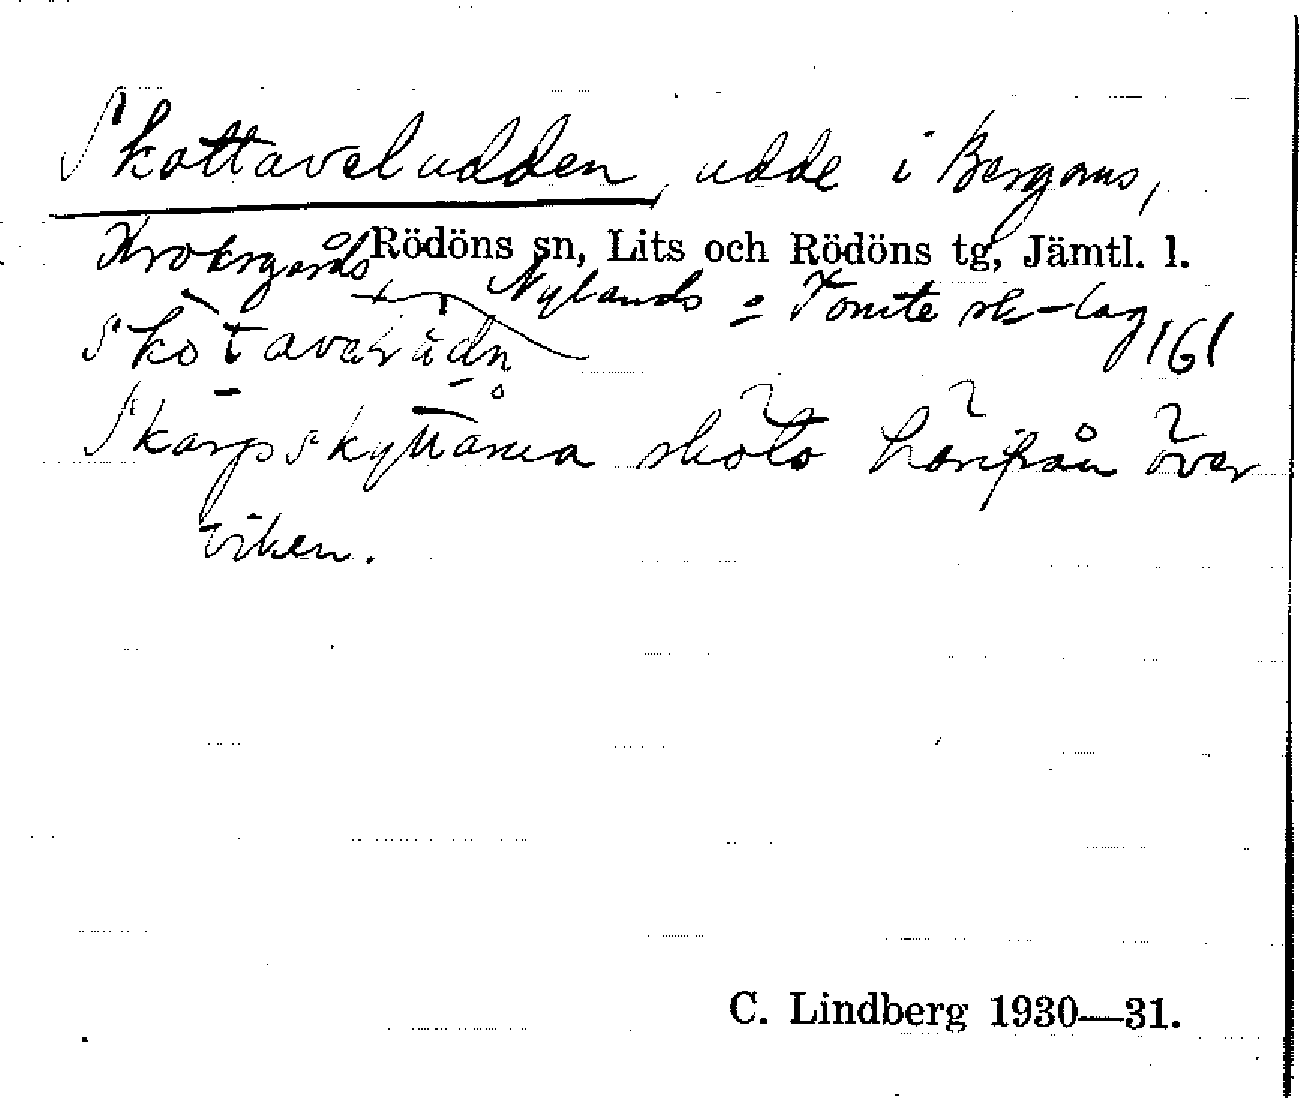 Skottaveludden, udde i Bergoms,
Krokgårds Rödöns sn, Lits och Rödöns tg, Jämtl. l.
+ Nylands = Tomte sk-lag 161
Skarpskyttarna sköto härifrån över
viken.
C. Lindberg 1930—31.